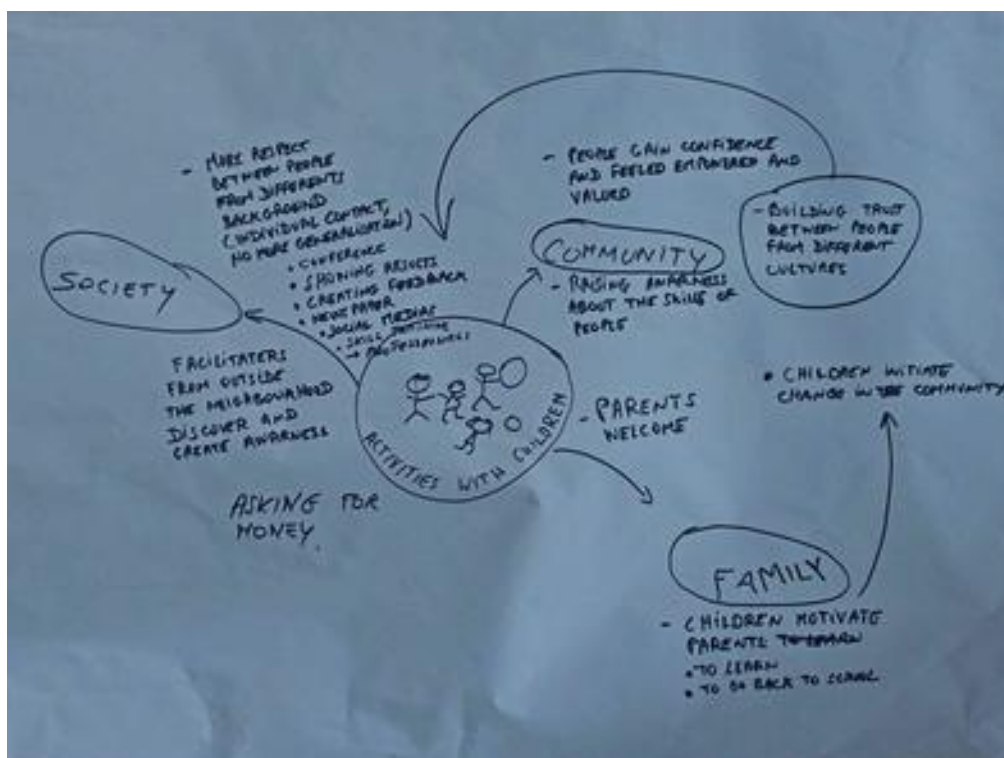 - MORE RESPECT
BETWEEN PEOPLE
FROM DIFFERENTS
BACKGROUND
(INDIVIDUAL CONTACT,
NO MORE GENERALISATION)
• CONFERENCE
• SHOWING RESULTS
• CREATING FEEDBACK
• NEWSPAPER
• SOCIAL MEDIAS
• SKILL
→ PROFESSIONALS
SOCIETY
FACILITATERS
FROM OUTSIDE
THE NEIGHBOURHOOD
DISCOVER AND
CREATE AWARNESS
ASKING FOR
MONEY.
ACTIVITIES WITH CHILDREN
- PEOPLE GAIN CONFIDENCE
AND FEELED EMPOWERED AND
VALUED
COMMUNITY
- RAISING AWARNESS
ABOUT THE SKILLS OF
PEOPLE
- BUILDING TRUST
BETWEEN PEOPLE
FROM DIFFERENT
CULTURES
- PARENTS
WELCOME
• CHILDREN INITIATE
CHANGE IN THE COMMUNITY
FAMILY
- CHILDREN MOTIVATE
PARENTS TO LEARN
• TO LEARN
• TO GO BACK TO SCHOOL